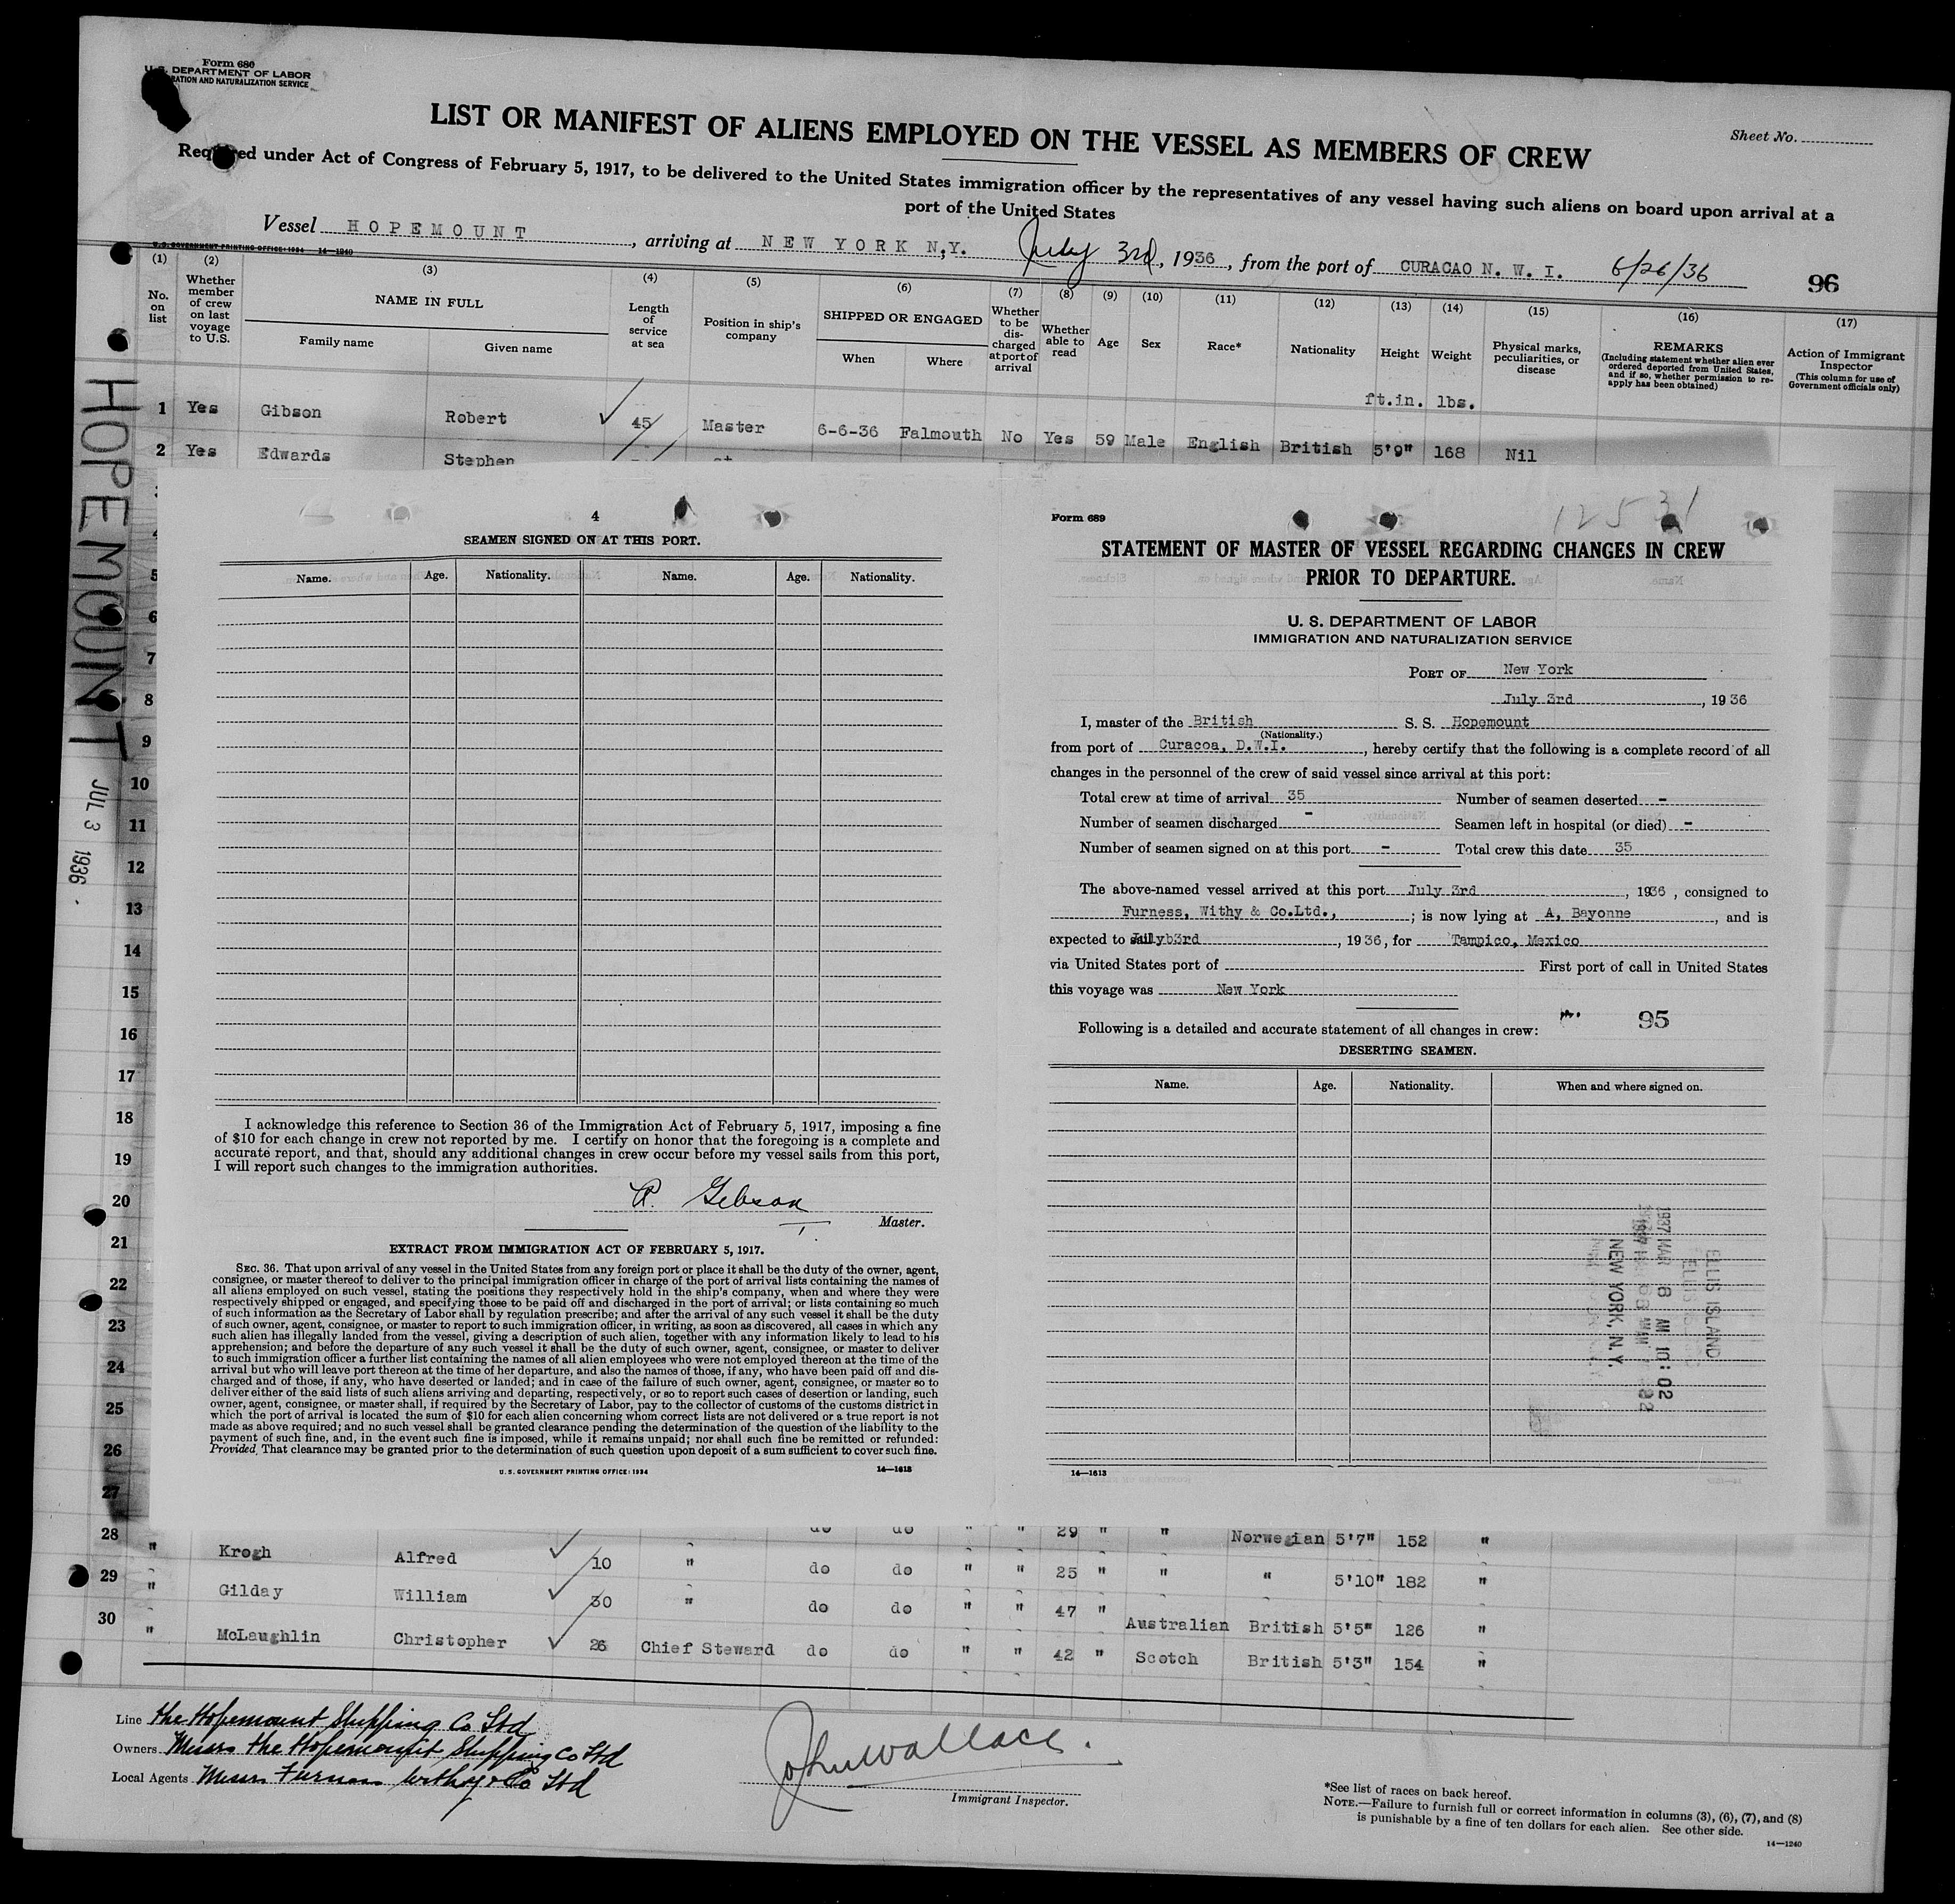 Form 680
U. S. DEPARTMENT OF LABOR
RATION AND NATURALIZATION SERVICE
LIST OR MANIFEST OF ALIENS EMPLOYED ON THE VESSEL AS MEMBERS OF CREW
Sheet No.
Required under Act of Congress of February 5, 1917, to be delivered to the United States immigration officer by the representatives of any vessel having such aliens on board upon arrival at a
port of the United States
Vessel HOPEMOUNT, arriving at NEW YORK N,Y. July 3rd, 1936, from the port of CURACAO N. W. I. 6/26/36
U.S. GOVERNMENT PRINTING OFFICE: 1934 14—1240
96
(1) No. on list
(2) Whether member of crew on last voyage to U.S.
(3) NAME IN FULL Family name Given name
(4) Length of service at sea
(5) Position in ship's company
(6) SHIPPED OR ENGAGED When Where
(7) Whether to be discharged at port of arrival
(8) Whether able to read
(9) Age
(10) Sex
(11) Race*
(12) Nationality
(13) Height
(14) Weight
(15) Physical marks, peculiarities, or disease
(16) REMARKS (Including statement whether alien ever ordered deported from United States, and if so, whether permission to reapply has been obtained)
(17) Action of Immigrant Inspector (This column for use of Government officials only)
ft.in. lbs.
1 Yes Gibson Robert 45 Master 6-6-36 Falmouth No Yes 59 Male English British 5'9" 168 Nil
2 Yes Edwards Stephen
HOPEMOUNT
JUL 3 1936
5
6
7
8
9
10
11
12
13
14
15
16
17
18
19
20
21
22
23
24
25
26
27
4
SEAMEN SIGNED ON AT THIS PORT.
Name. Age. Nationality. Name. Age. Nationality.
I acknowledge this reference to Section 36 of the Immigration Act of February 5, 1917, imposing a fine
of $10 for each change in crew not reported by me. I certify on honor that the foregoing is a complete and
accurate report, and that, should any additional changes in crew occur before my vessel sails from this port,
I will report such changes to the immigration authorities.
R. Gibson
Master.
EXTRACT FROM IMMIGRATION ACT OF FEBRUARY 5, 1917.
SEC. 36. That upon arrival of any vessel in the United States from any foreign port or place it shall be the duty of the owner, agent,
consignee, or master thereof to deliver to the principal immigration officer in charge of the port of arrival lists containing the names of
all aliens employed on such vessel, stating the positions they respectively hold in the ship's company, when and where they were
respectively shipped or engaged, and specifying those to be paid off and discharged in the port of arrival; or lists containing so much
of such information as the Secretary of Labor shall by regulation prescribe; and after the arrival of any such vessel it shall be the duty
of such owner, agent, consignee, or master to report to such immigration officer, in writing, as soon as discovered, all cases in which any
such alien has illegally landed from the vessel, giving a description of such alien, together with any information likely to lead to his
apprehension; and before the departure of any such vessel it shall be the duty of such owner, agent, consignee, or master to deliver
to such immigration officer a further list containing the names of all alien employees who were not employed thereon at the time of the
arrival but who will leave port thereon at the time of her departure, and also the names of those, if any, who have been paid off and dis-
charged and of those, if any, who have deserted or landed; and in case of the failure of such owner, agent, consignee, or master so to
deliver either of the said lists of such aliens arriving and departing, respectively, or so to report such cases of desertion or landing, such
owner, agent, consignee, or master shall, if required by the Secretary of Labor, pay to the collector of customs of the customs district in
which the port of arrival is located the sum of $10 for each alien concerning whom correct lists are not delivered or a true report is not
made as above required; and no such vessel shall be granted clearance pending the determination of the question of the liability to the
payment of such fine, and, in the event such fine is imposed, while it remains unpaid; nor shall such fine be remitted or refunded:
Provided, That clearance may be granted prior to the determination of such question upon deposit of a sum sufficient to cover such fine.
U. S. GOVERNMENT PRINTING OFFICE: 1934 14—1613
Form 689
12531
STATEMENT OF MASTER OF VESSEL REGARDING CHANGES IN CREW
PRIOR TO DEPARTURE.
U. S. DEPARTMENT OF LABOR
IMMIGRATION AND NATURALIZATION SERVICE
PORT OF New York
July 3rd, 1936
I, master of the British S. S. Hopemount
(Nationality.)
from port of Curacoa, D.W.I., hereby certify that the following is a complete record of all
changes in the personnel of the crew of said vessel since arrival at this port:
Total crew at time of arrival 35 Number of seamen deserted -
Number of seamen discharged - Seamen left in hospital (or died) -
Number of seamen signed on at this port - Total crew this date 35
The above-named vessel arrived at this port July 3rd, 1936, consigned to
Furness, Withy & Co.Ltd., ; is now lying at A, Bayonne, and is
expected to 3rd, 1936, for Tampico, Mexico
via United States port of First port of call in United States
this voyage was New York
Following is a detailed and accurate statement of all changes in crew: 95
DESERTING SEAMEN.
Name. Age. Nationality. When and where signed on.
ELLIS ISLAND
1937 MAR 8 AM 10:02
NEW YORK, N.Y.
14—1613
do do " " 29 " " Norwegian 5'7" 152 "
28 " Krogh Alfred 10 " do do " " 25 " " " 5'10" 182 "
29 " Gilday William 30 " do do " " 47 " Australian British 5'5" 126 "
30 " McLaughlin Christopher 26 Chief Steward do do " " 42 " Scotch British 5'3" 154 "
Line The Hopemount Shipping Co Ltd
Owners Messrs The Hopemount Shipping Co Ltd
Local Agents Messrs Furness Withy & Co Ltd
John Wallace.
Immigrant Inspector.
*See list of races on back hereof.
NOTE.—Failure to furnish full or correct information in columns (3), (6), (7), and (8)
is punishable by a fine of ten dollars for each alien. See other side.
14—1240